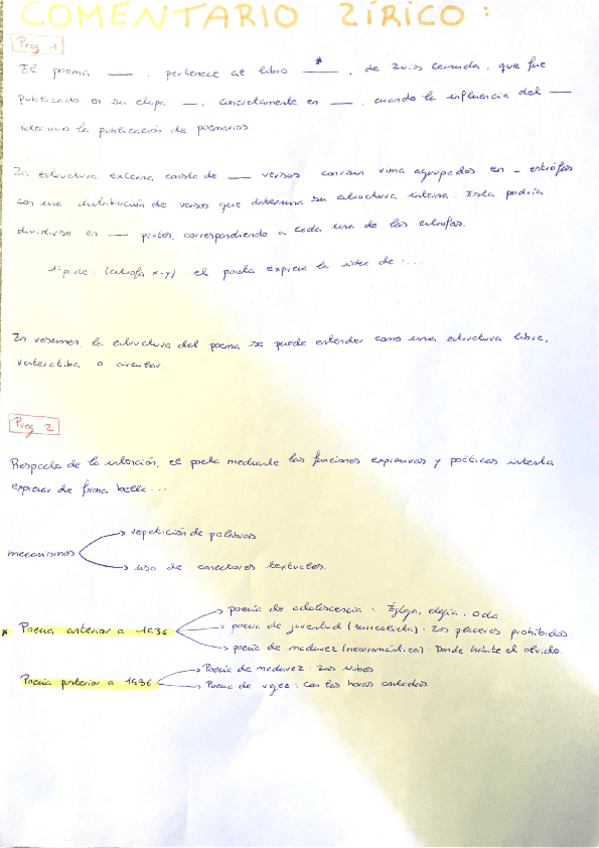 COMENTARIO LÍRICO:
Preg 1
El poema ___, pertenece al libro ___*, de Luis Cernuda, que fue
publicado en su etapa __, concretamente en __, cuando la influencia del ___
la publicación de poemarios
La estructura externa consta de ___ versos con/sin rima agrupados en _ estrofas
con una distribución de versos que determina su estructura interna. Esta podría
dividirse en ___ partes, correspondiendo a cada una de las estrofas.
1ª parte: (estrofa x-y) el poeta expresa la idea de ...
En resumen, la estructura del poema se puede entender como una estructura libre,
o circular.
Preg 2
Respecto de la intención, el poeta mediante las funciones expresivas y poéticas intenta
expresar de forma bella ...
mecanismos
repetición de palabras
uso de conectores textuales.
* Poesía anterior a 1936
poesía de adolescencia: Égloga, elegía, oda
poesía de juventud (surrealista): Los placeres prohibidos
poesía de madurez (neorromántica): Donde habite el olvido.
Poesía posterior a 1936
Poesía de madurez: Las nubes
Poesía de vejez: Con las horas contadas.